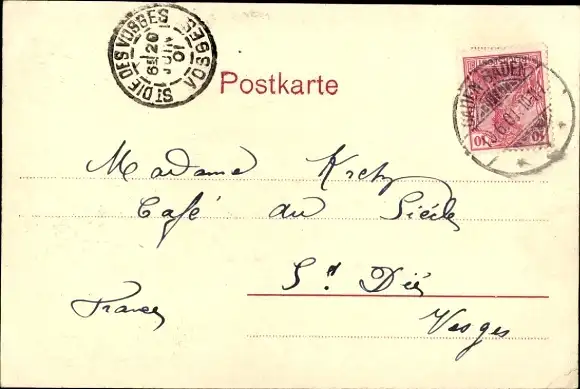 ST DIE DES VOSGES
VOSGES
6E 20
JUIN
01
Postkarte
BADEN-BADEN
10 10
Madame Krety
Café du Siècle
St Dié
France
Vosges